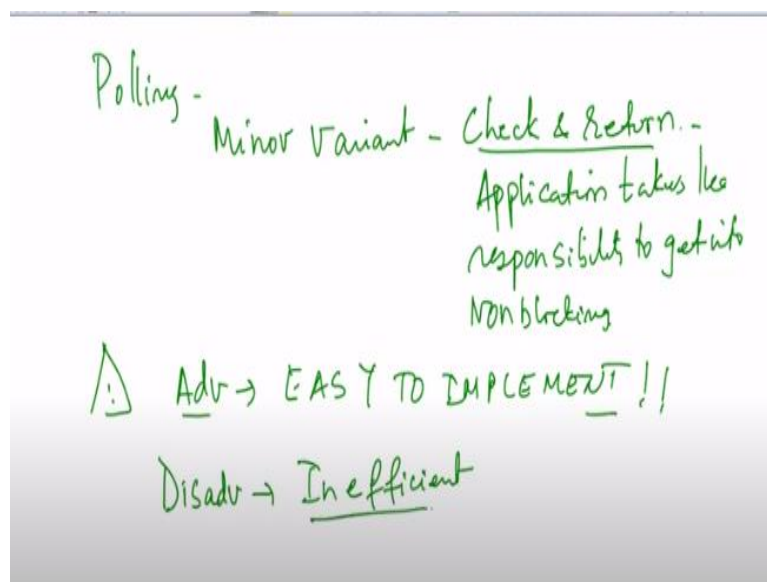 Polling -
Minor Variant - Check & Return. -
Application takes the
responsibility to get into
Nonblocking
Adv → EASY TO IMPLEMENT!!
Disadv → Inefficient